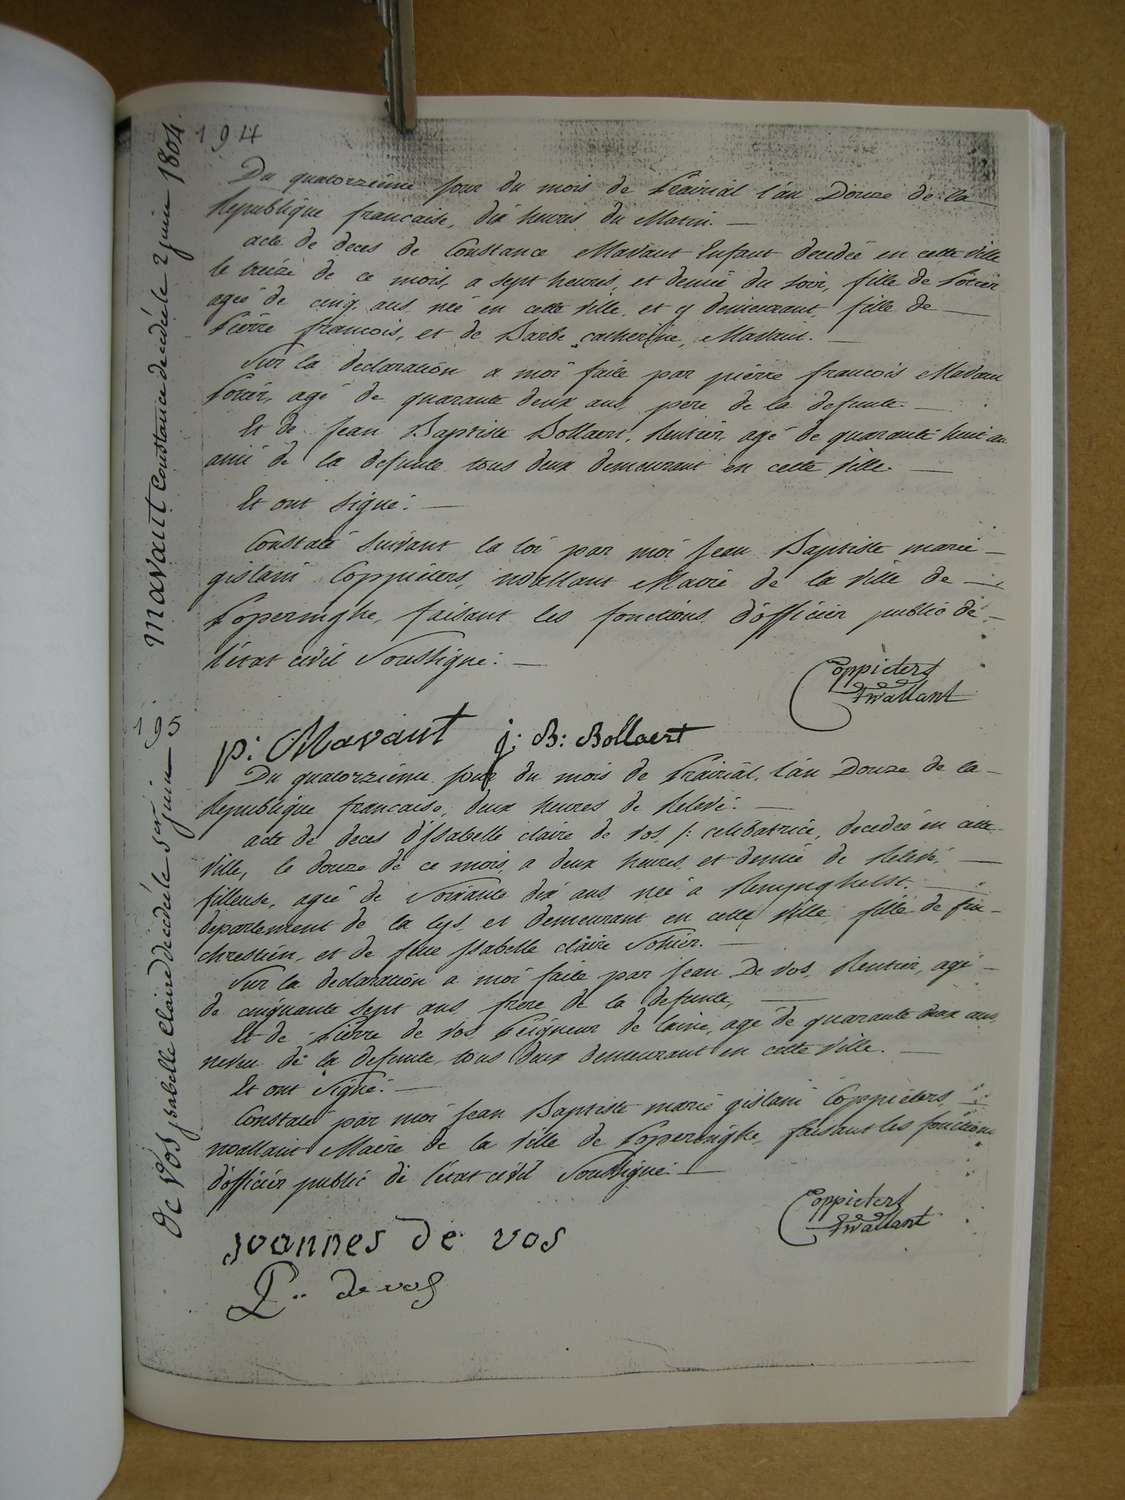 194
Mavaut Constance decédée le 2 juin 1804.
Du quatorzième jour du mois de Prairial l'an Douze de la
Republique francaise, dix heures du Matin.
acte de deces de Constance Mavaut Enfant decedée en cette ville
le treize de ce mois, a sept heures, et demie du soir, fille de Potier
agée de cinq ans née en cette ville et y demeurant, fille de
Pierre francois, et de Barbe catherine, Mavaut.
Sur la declaration a moi faite par pierre francois Mavaut
Potier, agé de quarante deux ans, pere de la defunte.
Et de Jean Baptiste Bollaert, Rentier, agé de quarante huit ans
ami de la defunte tous deux demeurant en cette ville.
Et ont signé.
Constaté suivant la loi par moi Jean Baptiste marie
gislain Coppieters, wallant Maire de la ville de
Poperinghe, faisant les fonctions d'officier public de
l'état civil Soussigné.
Coppieters
twallant
p: Mavaut j: B: Bollaert
195
de Vos jsabelle Claire decédé le 5er juin
Du quatorzième jour du mois de Prairial, l'an Douze de la
Republique francaise, deux heures de Relevé.
acte de deces d'Jsabelle claire de vos, /: celibatrice, decedée en cette
ville, le douze de ce mois a deux heures et demie de Relevé,
filleuse, agée de Soixante dix ans née a Renynghelst.
departement de la Lys, et demeurant en cette ville, fille de feu
chrestien, et de feue Jsabelle claire Sohier.
Sur la declaration a moi faite par Jean De vos, Rentier, agé
de cinquante sept ans, frere de la defunte,
Et de Pierre de vos Peigneur de laine, age de quarante deux ans
neveu de la defunte, tous deux demeurant en cette ville.
Et ont signé.
Constaté par moi Jean Baptiste marie gislain Coppieters
wallant Maire de la ville de Poperinghe, faisant les fonctions
d'officier public de l'état civil Soussigné.
Coppieters
twallant
joannes de vos
P.. de vos